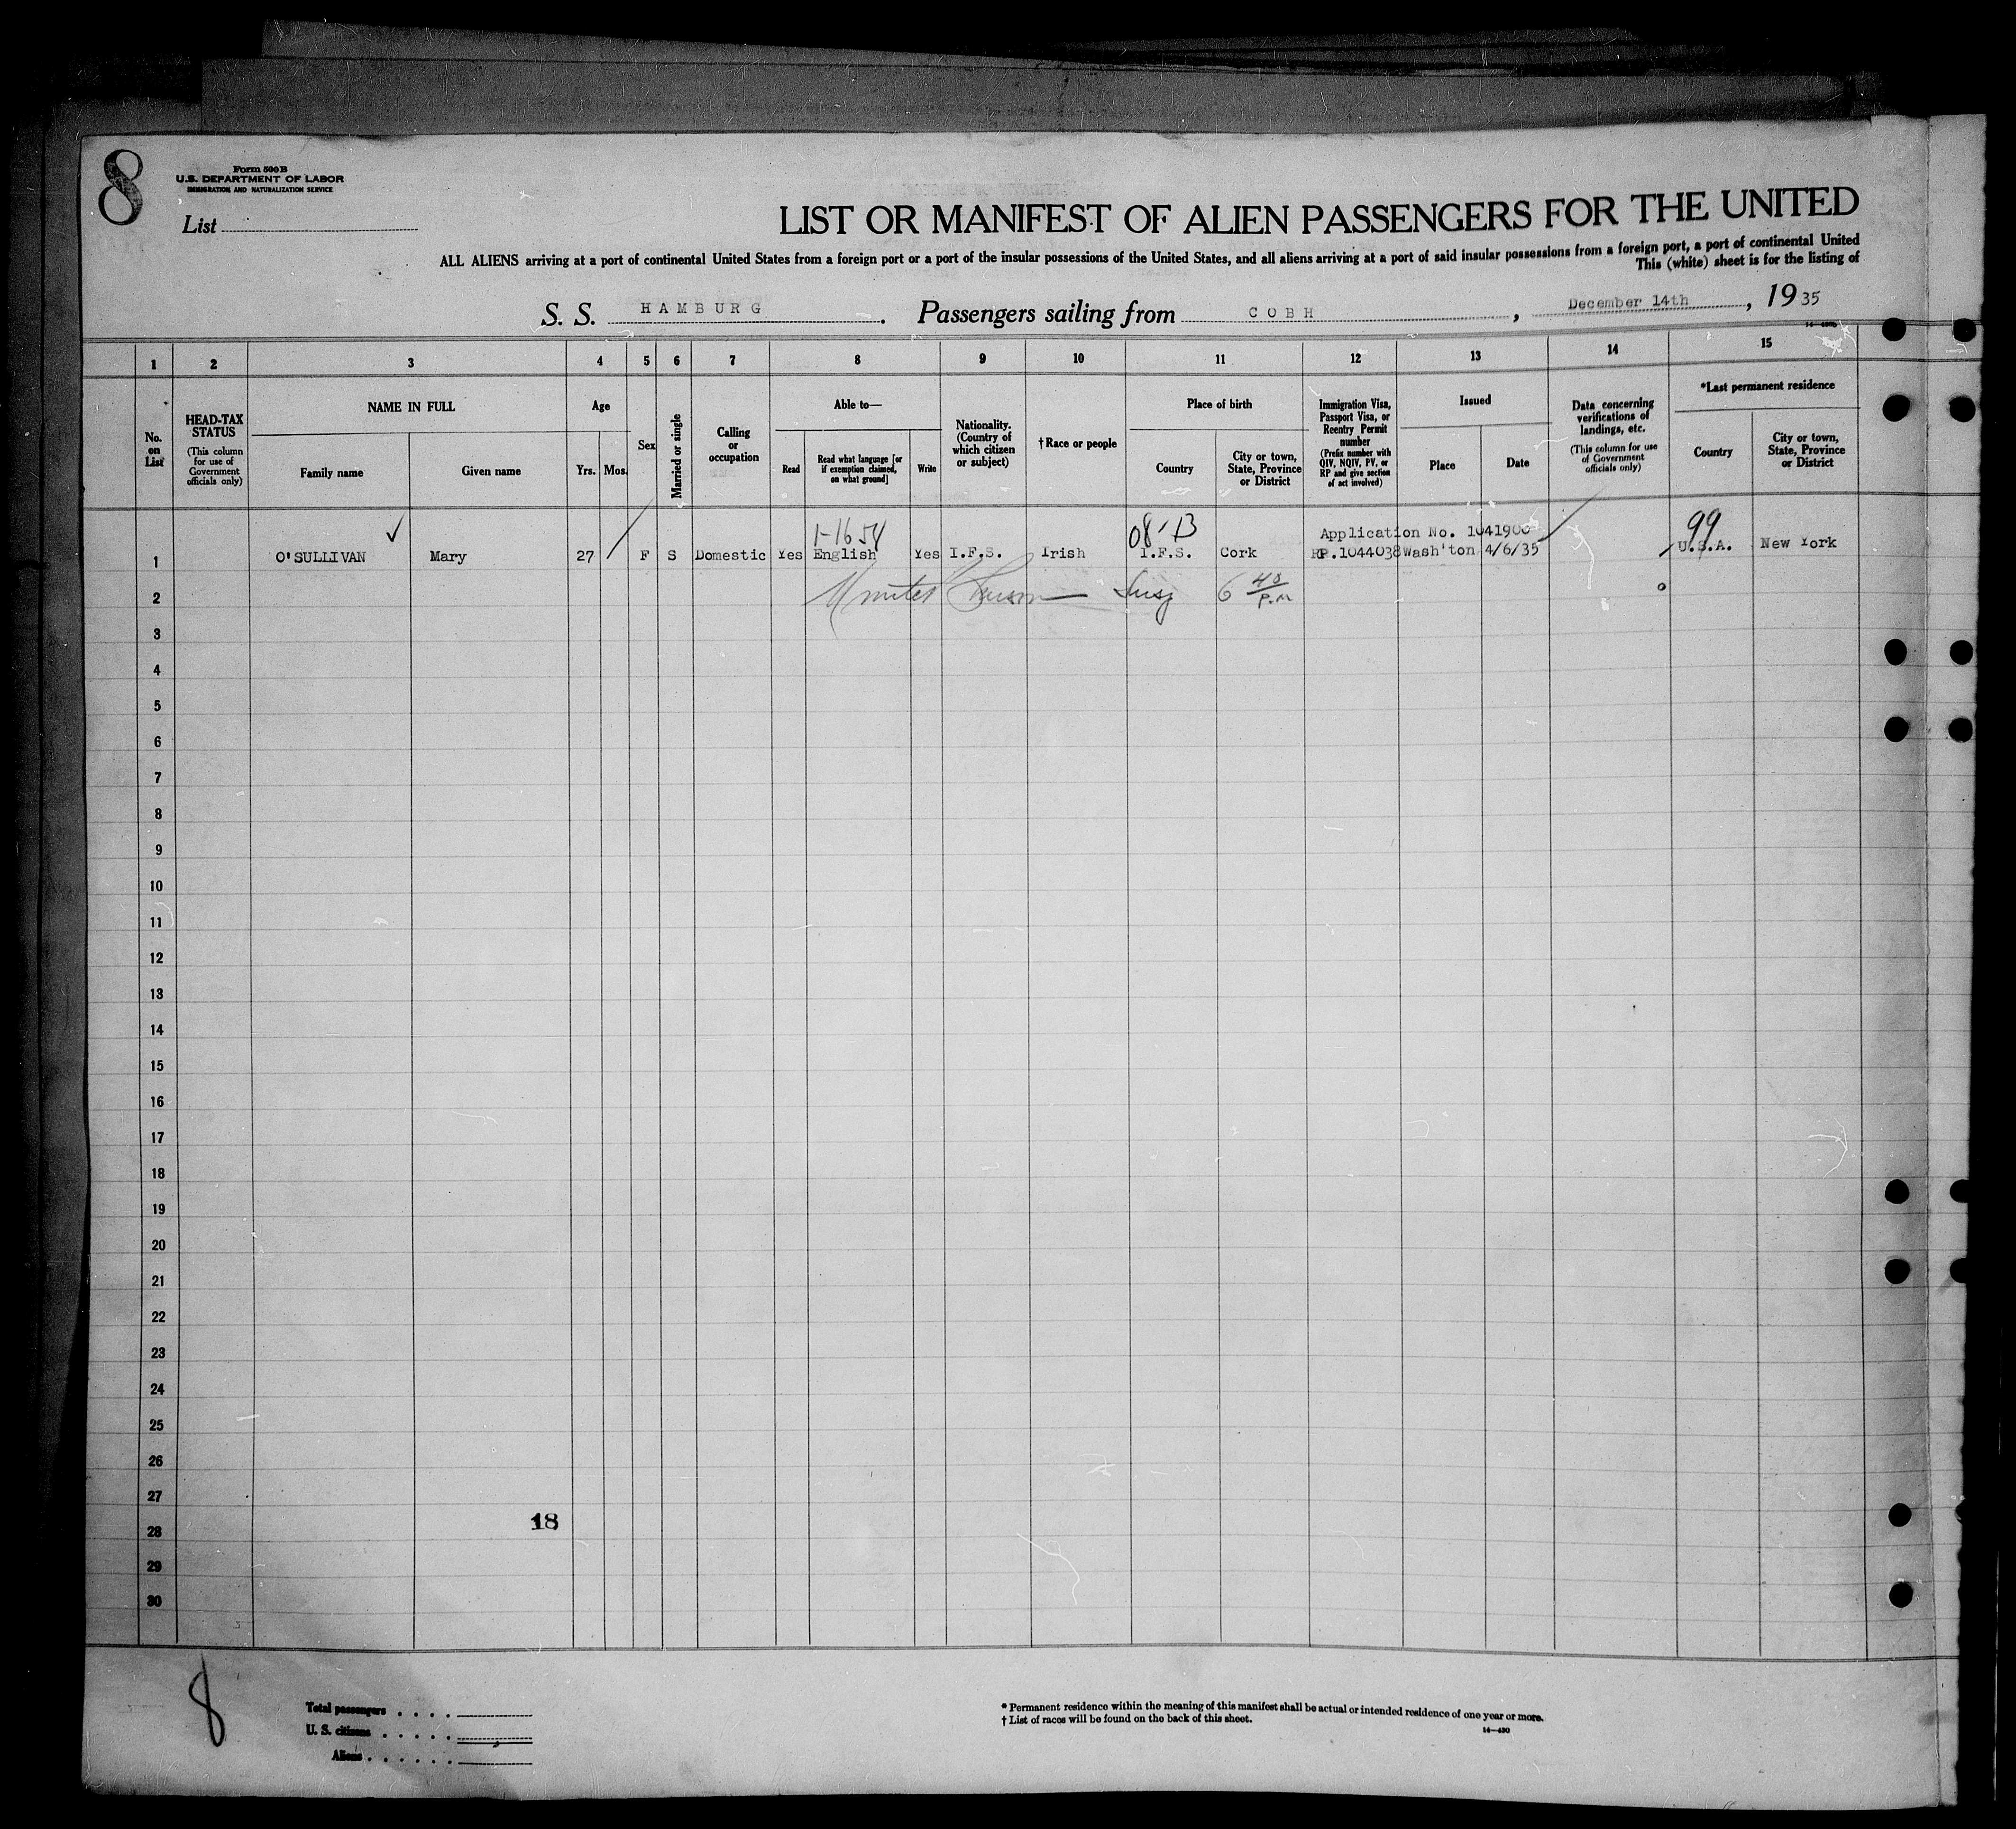 8
Form 500 B
U.S. DEPARTMENT OF LABOR
IMMIGRATION AND NATURALIZATION SERVICE
List
LIST OR MANIFEST OF ALIEN PASSENGERS FOR THE UNITED
ALL ALIENS arriving at a port of continental United States from a foreign port or a port of the insular possessions of the United States, and all aliens arriving at a port of said insular possessions from a foreign port, a port of continental United
This (white) sheet is for the listing of
S. S. HAMBURG. Passengers sailing from COBH, December 14th, 1935
1 2 3 4 5 6 7 8 9 10 11 12 13 14 15
No. on List
HEAD-TAX STATUS
(This column for use of Government officials only)
NAME IN FULL
Family name
Given name
Age
Yrs. Mos.
Sex
Married or single
Calling or occupation
Able to—
Read
Read what language [or if exemption claimed, on what ground]
Write
Nationality. (Country of which citizen or subject)
†Race or people
Place of birth
Country
City or town, State, Province or District
Immigration Visa, Passport Visa, or Reentry Permit number
(Prefix number with QIV, NQIV, PV, or RP and give section of act involved)
Issued
Place
Date
Data concerning verifications of landings, etc.
(This column for use of Government officials only)
*Last permanent residence
Country
City or town, State, Province or District
08 B Application No. 1041900 99
1 O'SULLIVAN Mary 27 F S Domestic Yes English Yes I.F.S. Irish I.F.S. Cork RP.1044038 Wash'ton 4/6/35 U.S.A. New York
2 Insp 6 40 P.M
3
4
5
6
7
8
9
10
11
12
13
14
15
16
17
18
19
20
21
22
23
24
25
26
27
18
28
29
30
8
Total passengers
U. S. citizens
Aliens
* Permanent residence within the meaning of this manifest shall be actual or intended residence of one year or more.
† List of races will be found on the back of this sheet.
14—430